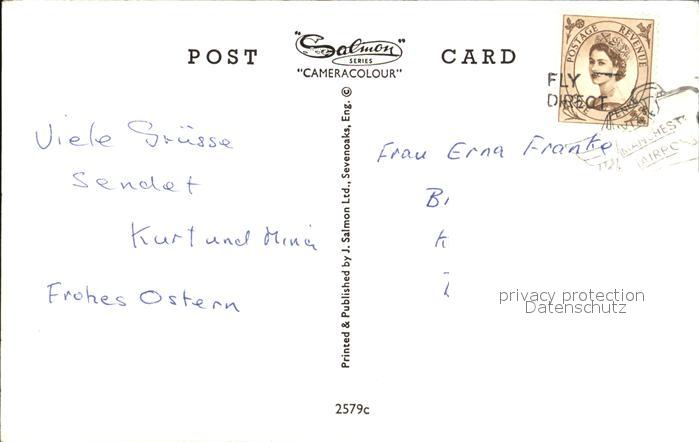 POST CARD
"Salmon"
SERIES
"CAMERACOLOUR"
POSTAGE REVENUE
FLY
DIRECT
MANCHEST
AIRPO
Viele Grüsse
Sendet
Kurt und Mina
Frohes Ostern
Printed & Published by J. Salmon Ltd., Sevenoaks, Eng. ©
Frau Erna Franke
privacy protection
Datenschutz
2579c